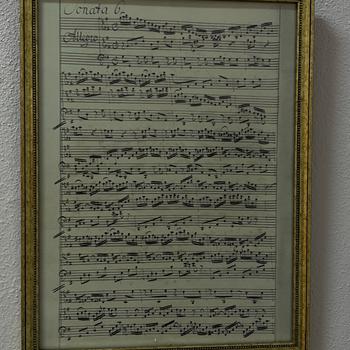 Sonata 6
Allegro